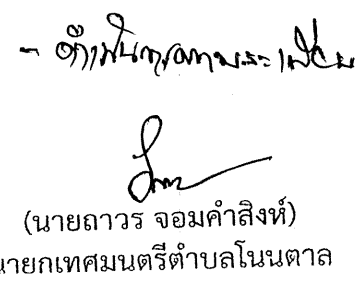 - ดำเนินการตามระเบียบ
(นายถาวร จอมคำสิงห์)
นายกเทศมนตรีตำบลโนนตาล